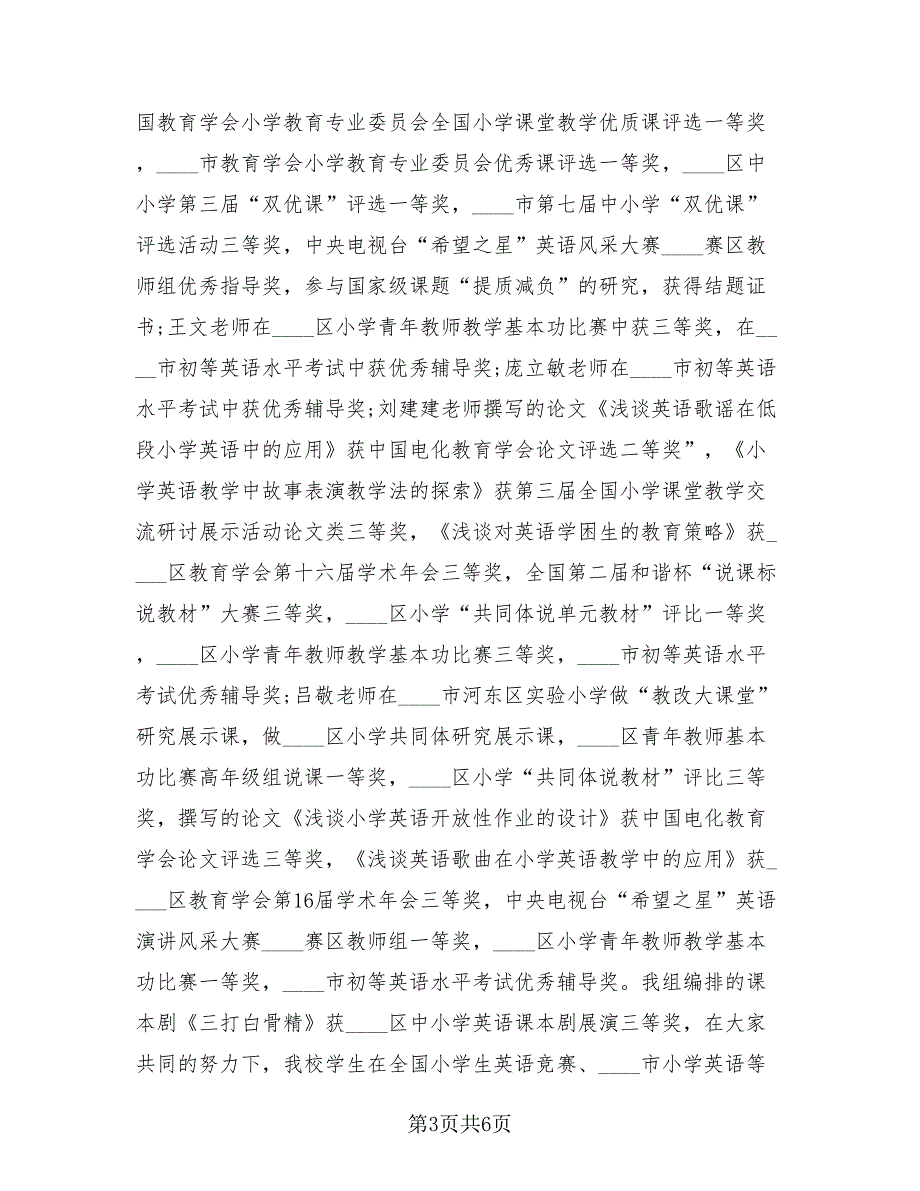 国教育学会小学教育专业委员会全国小学课堂教学优质课评选一等奖
，____市教育学会小学教育专业委员会优秀课评选一等奖，____区中
小学第三届“双优课”评选一等奖，____市第七届中小学“双优课”
评选活动三等奖，中央电视台“希望之星”英语风采大赛____赛区教
师组优秀指导奖，参与国家级课题“提质减负”的研究，获得结题证
书;王文老师在____区小学青年教师教学基本功比赛中获三等奖，在__
__市初等英语水平考试中获优秀辅导奖;庞立敏老师在____市初等英语
水平考试中获优秀辅导奖;刘建建老师撰写的论文《浅谈英语歌谣在低
段小学英语中的应用》获中国电化教育学会论文评选二等奖”，《小
学英语教学中故事表演教学法的探索》获第三届全国小学课堂教学交
流研讨展示活动论文类三等奖，《浅谈对英语学困生的教育策略》获_
___区教育学会第十六届学术年会三等奖，全国第二届和谐杯“说课标
说教材”大赛三等奖，____区小学“共同体说单元教材”评比一等奖
，____区小学青年教师教学基本功比赛三等奖，____市初等英语水平
考试优秀辅导奖;吕敬老师在____市河东区实验小学做“教改大课堂”
研究展示课，做____区小学共同体研究展示课，____区青年教师基本
功比赛高年级组说课一等奖，____区小学“共同体说教材”评比三等
奖，撰写的论文《浅谈小学英语开放性作业的设计》获中国电化教育
学会论文评选三等奖，《浅谈英语歌曲在小学英语教学中的应用》获_
___区教育学会第16届学术年会三等奖，中央电视台“希望之星”英语
演讲风采大赛____赛区教师组一等奖，____区小学青年教师教学基本
功比赛一等奖，____市初等英语水平考试优秀辅导奖。我组编排的课
本剧《三打白骨精》获____区中小学英语课本剧展演三等奖，在大家
共同的努力下，我校学生在全国小学生英语竞赛、____市小学英语等
第3页共6页